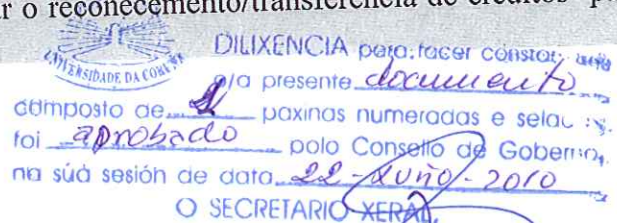 ar o reconecemento/transferencia de créditos p
UNIVERSIDADE DA CORUÑA
DILIXENCIA para facer constar que
o/a presente documento
composto de páxinas numeradas e selad
foi aprobado polo Consello de Goberno,
na súa sesión de data 22-xuño-2010
O SECRETARIO XERAL,